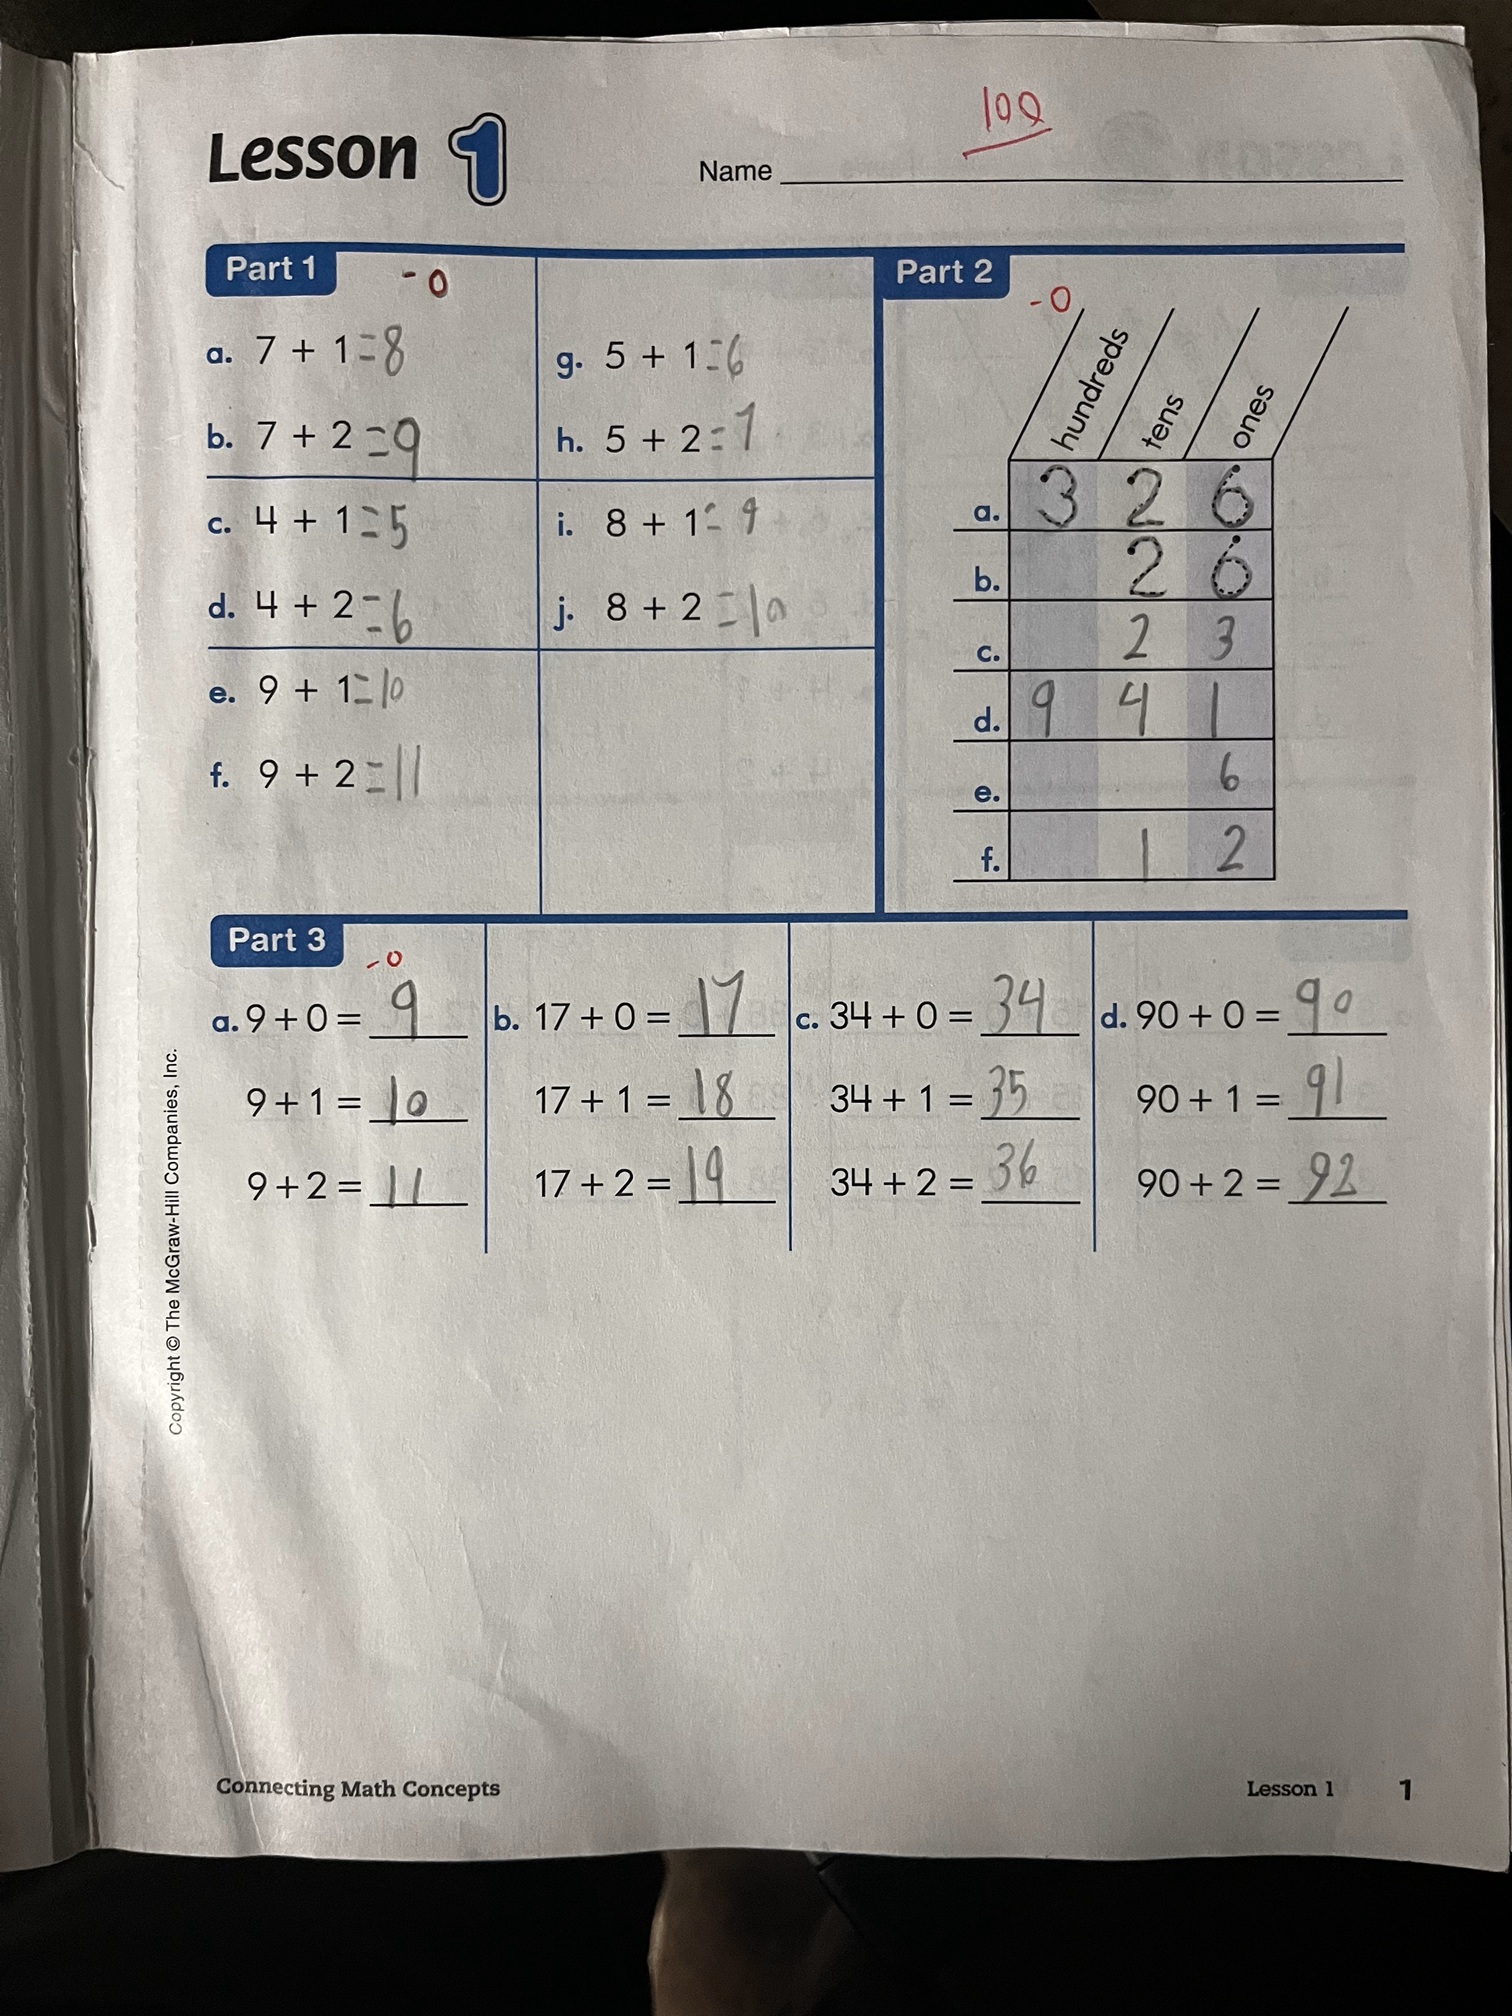 Lesson 1
Name
100
Part 1
-0
a. 7 + 1 = 8
b. 7 + 2 = 9
c. 4 + 1 = 5
d. 4 + 2 = 6
e. 9 + 1 = 10
f. 9 + 2 = 11
g. 5 + 1 = 6
h. 5 + 2 = 7
i. 8 + 1 = 9
j. 8 + 2 = 10
Part 2
-0
hundreds tens ones
a. 3 2 6
b. 2 6
c. 2 3
d. 9 4 1
e. 6
f. 1 2
Part 3
-0
a. 9 + 0 = 9
9 + 1 = 10
9 + 2 = 11
b. 17 + 0 = 17
17 + 1 = 18
17 + 2 = 19
c. 34 + 0 = 34
34 + 1 = 35
34 + 2 = 36
d. 90 + 0 = 90
90 + 1 = 91
90 + 2 = 92
Copyright © The McGraw-Hill Companies, Inc.
Connecting Math Concepts
Lesson 1 1